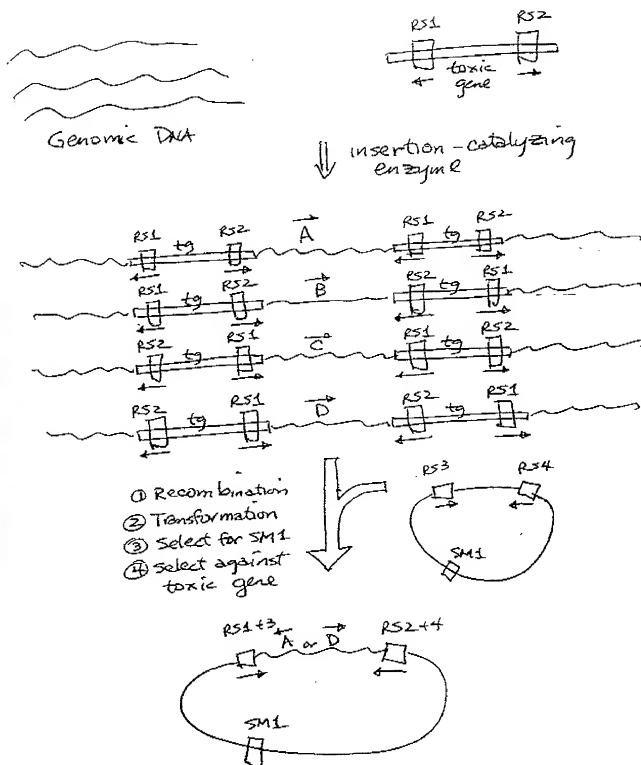 RS1 RS2
toxic
gene
Genomic DNA
insertion-catalyzing
enzyme
RS1 tg RS2 A RS1 tg RS2
RS1 tg RS2 B RS2 tg RS1
RS2 tg RS1 C RS1 tg RS2
RS2 tg RS1 D RS2 tg RS1
① Recombination
② Transformation
③ Select for SM1
④ Select against
toxic gene
RS3 RS4
SM1
RS1+3 A or D RS2+4
SM1